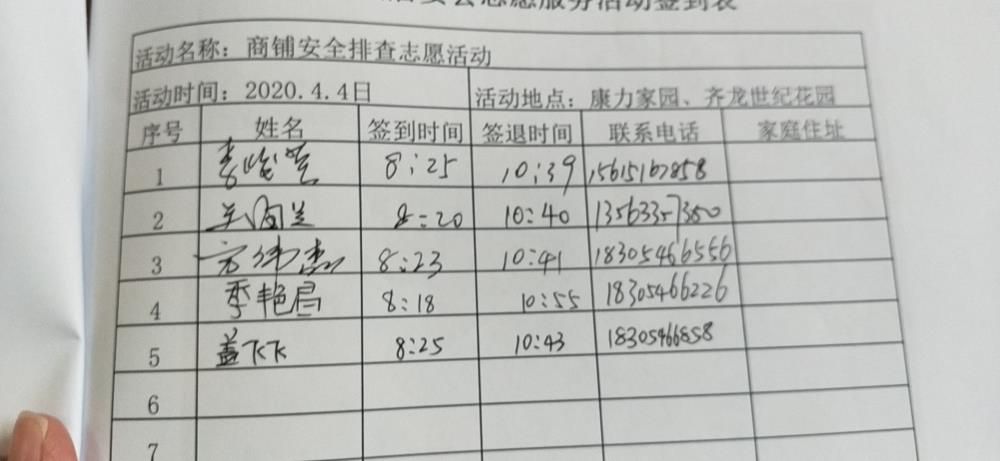 志愿服务活动签到表
活动名称：商铺安全排查志愿活动
活动时间：2020.4.4日 活动地点：康力家园、齐龙世纪花园
序号 姓名 签到时间 签退时间 联系电话 家庭住址
1 8:25 10:39 15615167858
2 8:20 10:40 13563357380
3 8:23 10:41 18305466556
4 季艳昌 8:18 10:55 18305466226
5 盖飞飞 8:25 10:43 18305466858
6
7